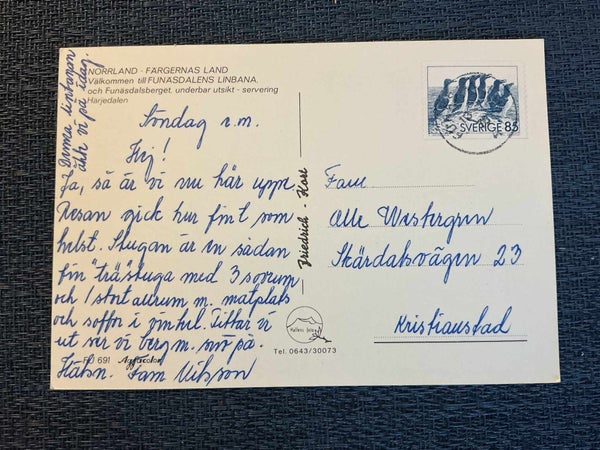 NORRLAND - FÄRGERNAS LAND
Välkommen till FUNÄSDALENS LINBANA.
och Funäsdalsberget, underbar utsikt - servering
Härjedalen
Denna linbanan
åkte vi på idag.
Söndag e.m.
Hej!
Ja, så är vi nu här uppe.
Resan gick hur fint som
helst. Stugan är en sådan
fin "trä"stuga med 3 sovrum
och 1 stort allrum m. matplats
och soffor i vinkel. Tittar vi
ut ser vi berg m. snö på.
Hälsn. Fam Nilsson
FU 691 Agfacolor
Friedrich - Kort
Hällens foto
Tel. 0643/30073
SVERIGE 85
Fam
Olle Westergren
Skärdalsvägen 23
Kristianstad